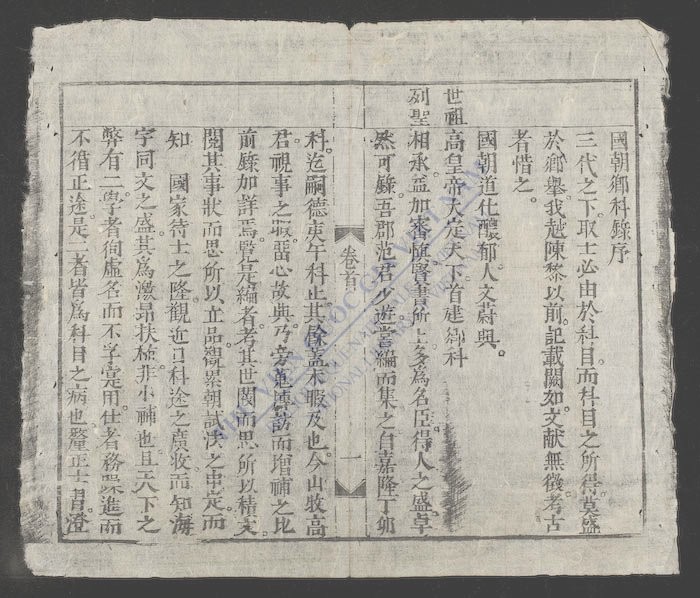 國朝鄉科錄序
三代之下取士必由於科目而科目之所得莫盛
於鄉舉我越陳黎以前記載闕如文献無徵考古
者惜之
國朝道化醲郁人文蔚興
世祖高皇帝大定天下首建鄉科
列聖相承益加審慎賢書所上多為名臣得人之盛卓
然可錄吾郡范君少遊嘗編而集之自嘉隆丁卯
科迄嗣德庚午科止其餘蓋未暇及也今山牧高
君視事之暇畱心故典乃旁蒐博訪而增補之比
前錄加詳焉覽是編者考其世閥而思所以績文
閱其事狀而思所以立品觀累朝試法之申定而
知 國家待士之隆觀近日科途之廣收而知海
宇同文之盛其為激昂扶植非小補也且天下之
弊有二學者徇虛名而不孚寔用仕者務躁進而
不循正途是二者皆為科目之病也釐正士習澄
卷首
一
VIỆN QUỐC GIA VIỆT NAM